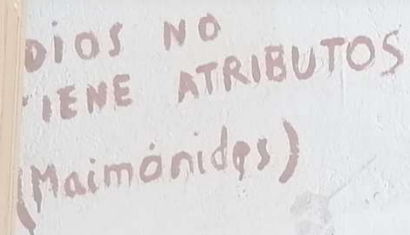 DIOS NO
TIENE ATRIBUTOS
(Maimónides)